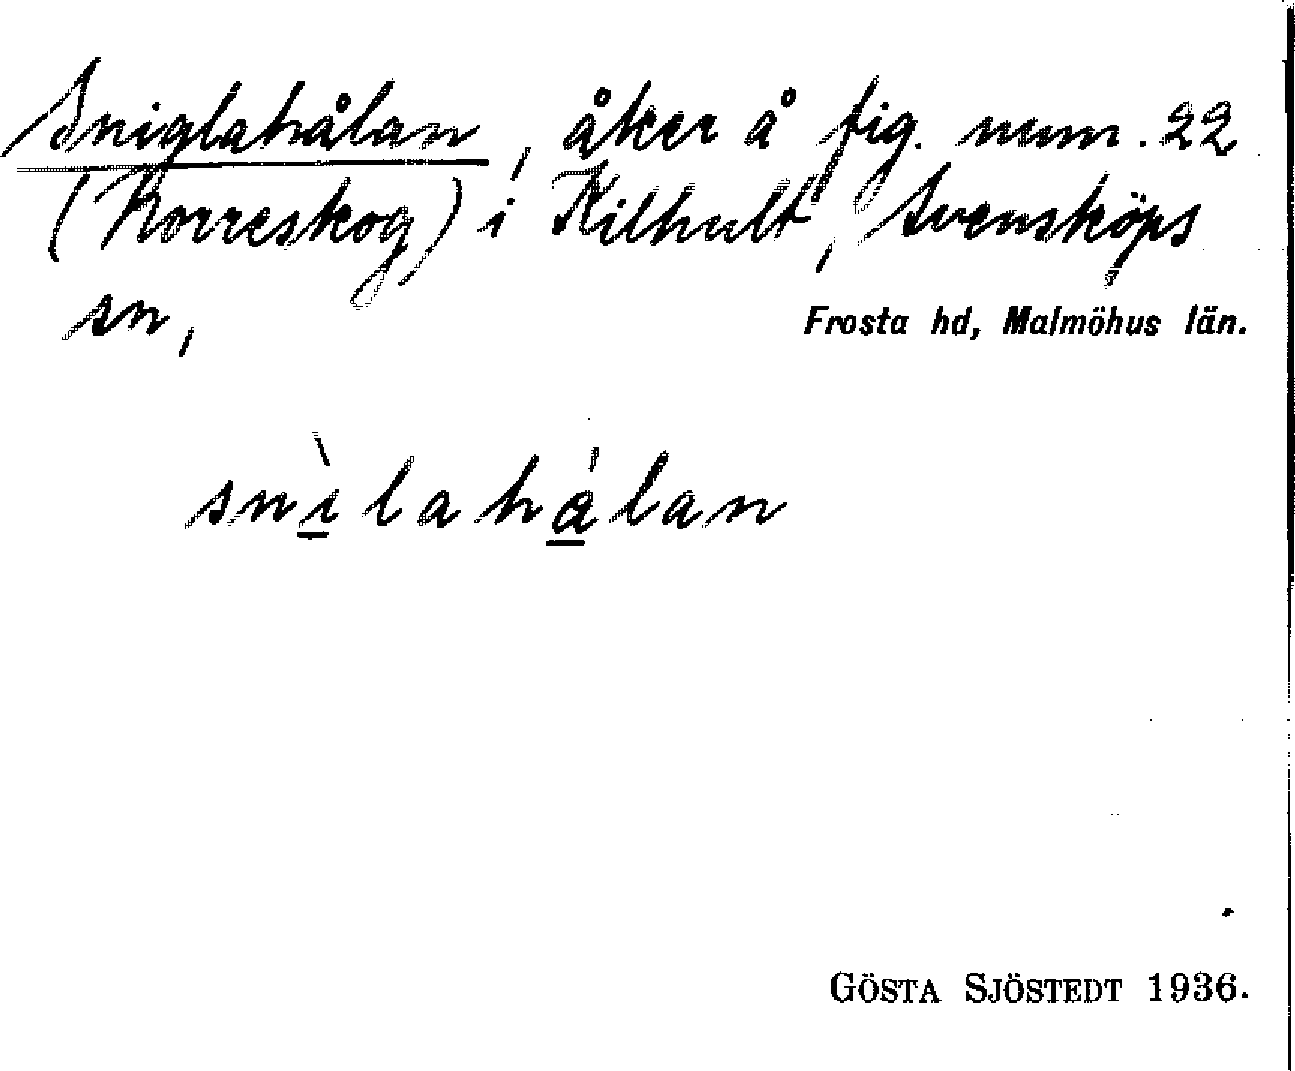 Sniglahålan, åker å fig. num. 22
(Korreskog) i Kilhult, Svensköps
sn,
Frosta hd, Malmöhus län.
snìlahålan
GÖSTA SJÖSTEDT 1936.